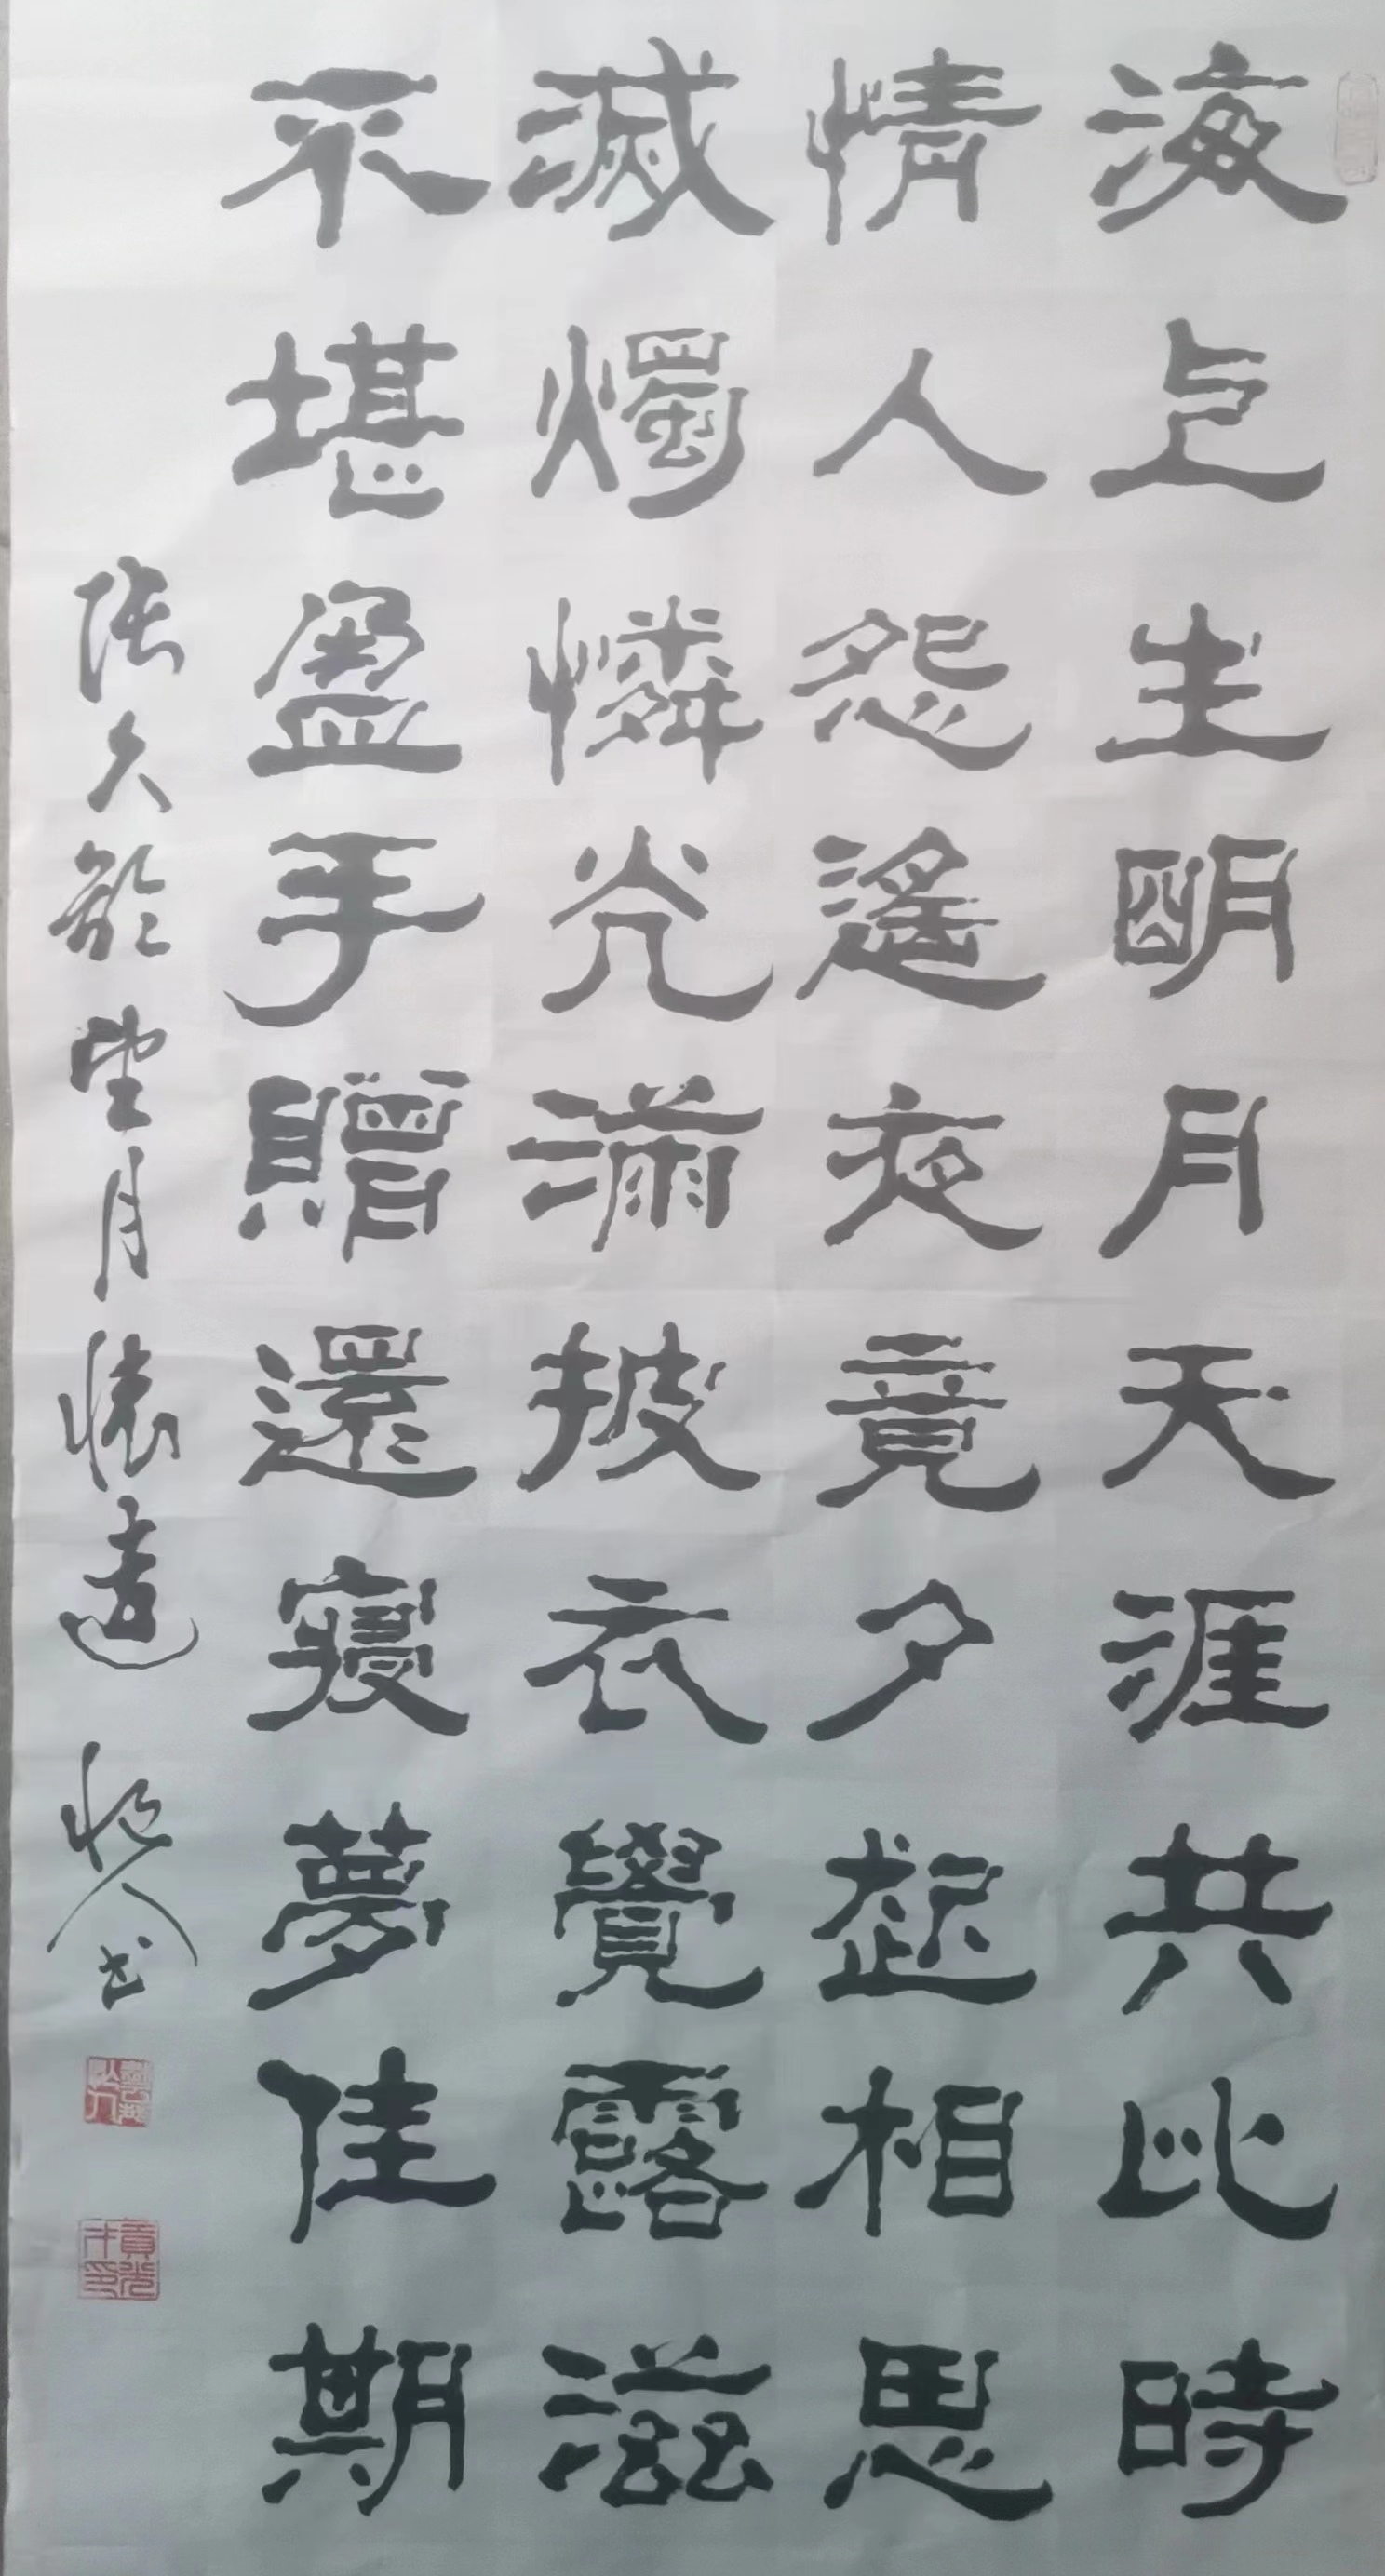 海上生明月天涯共此時
情人怨遙夜竟夕起相思
滅燭憐光滿披衣覺露滋
不堪盈手贈還寢夢佳期
張九齡望月懷遠
人书